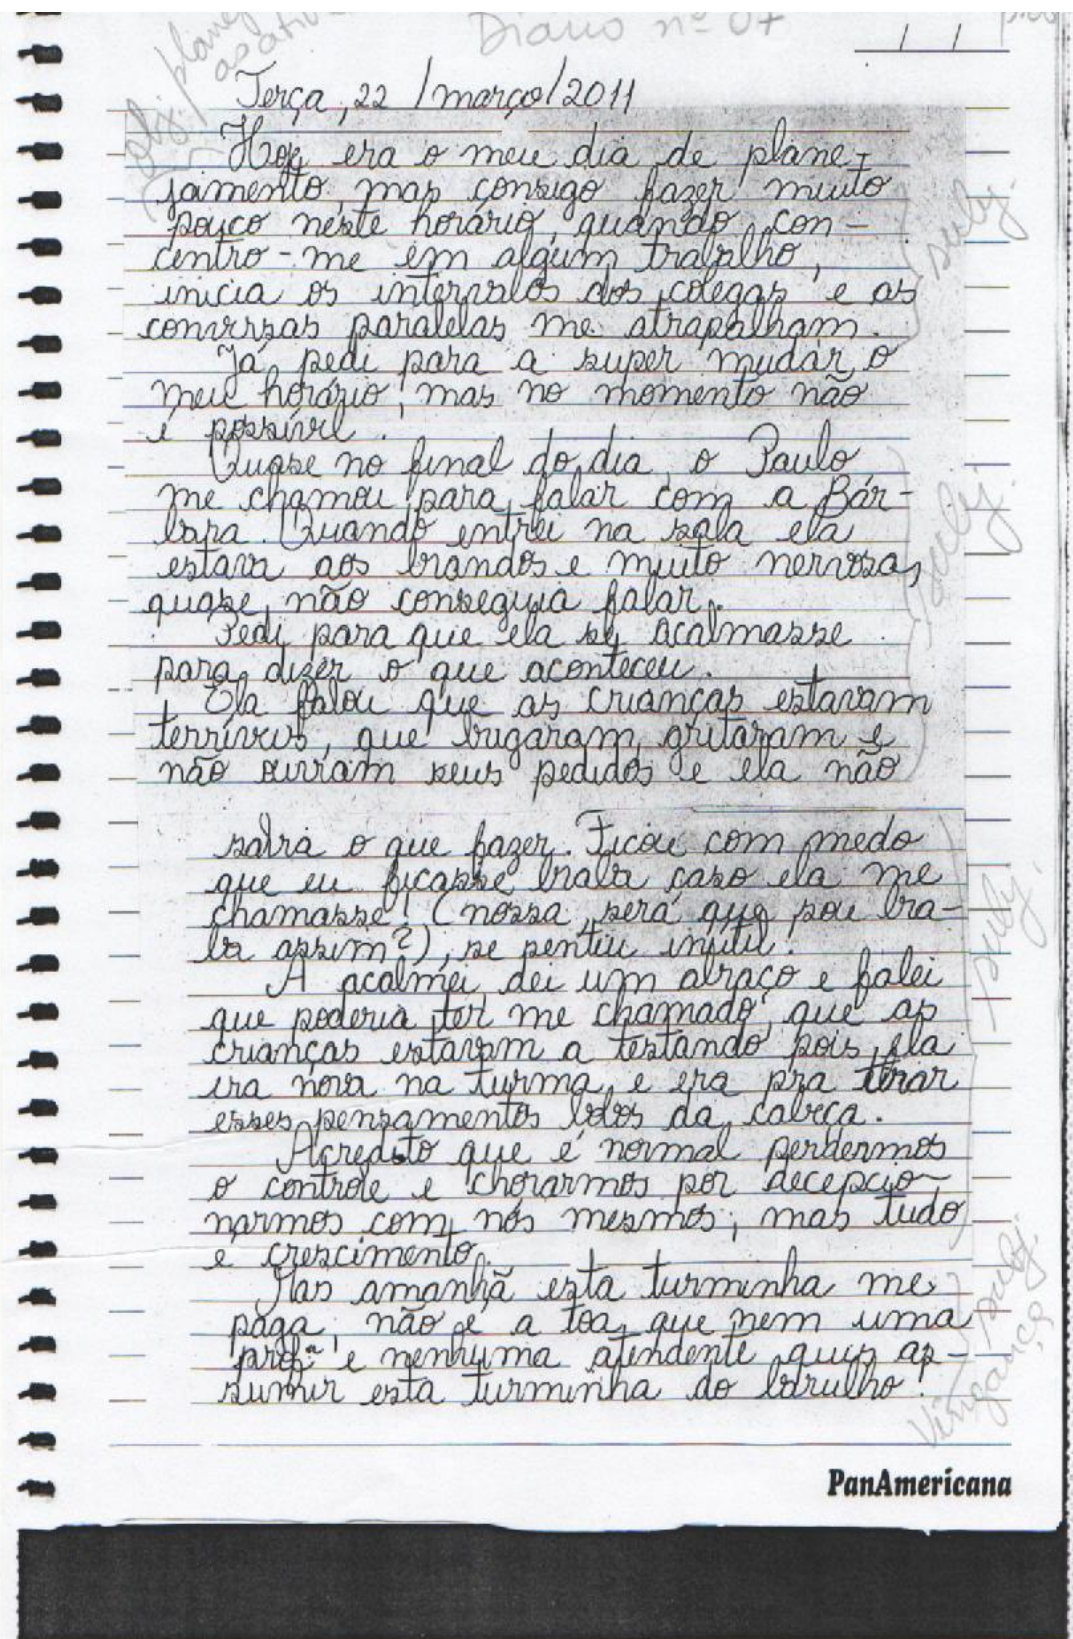 Diário nº 07
obj. / planej
as ativ
Terça, 22 / março / 2011
Hoje era o meu dia de plane-
jamento, mas consigo fazer muito
pouco neste horário, quando con-
centro-me em algum trabalho,
inicia os intervalos dos colegas e as
conversas paralelas me atrapalham.
Já pedi para a super mudar o
meu horário, mas no momento não
é possível.
subj.
Quase no final do dia, o Paulo
me chamou para falar com a Bár-
bara. Quando entrei na sala ela
estava aos brandos e muito nervosa,
quase não conseguia falar.
Pedi para que ela se acalmasse
para dizer o que aconteceu.
Ela falou que as crianças estavam
terríveis, que brigaram, gritaram e
não ouviam seus pedidos e ela não
subj.
sabia o que fazer. Ficou com medo
que eu ficasse braba caso ela me
chamasse! (nossa, será que sou bra-
ba assim?), se sentiu inútil.
A acalmei dei um abraço e falei
que poderia ter me chamado, que as
crianças estavam a testando pois ela
era nova na turma, e era pra tirar
esses pensamentos bobos da cabeça.
Acredito que é normal perdermos
o controle e chorarmos por decepcio-
narmos com nós mesmos, mas tudo
é crescimento.
subj.
Mas amanhã esta turminha me
paga, não é a toa que nem uma
profª e nenhuma atendente quis as-
sumir esta turminha do barulho!
subj.
Vingança
PanAmericana